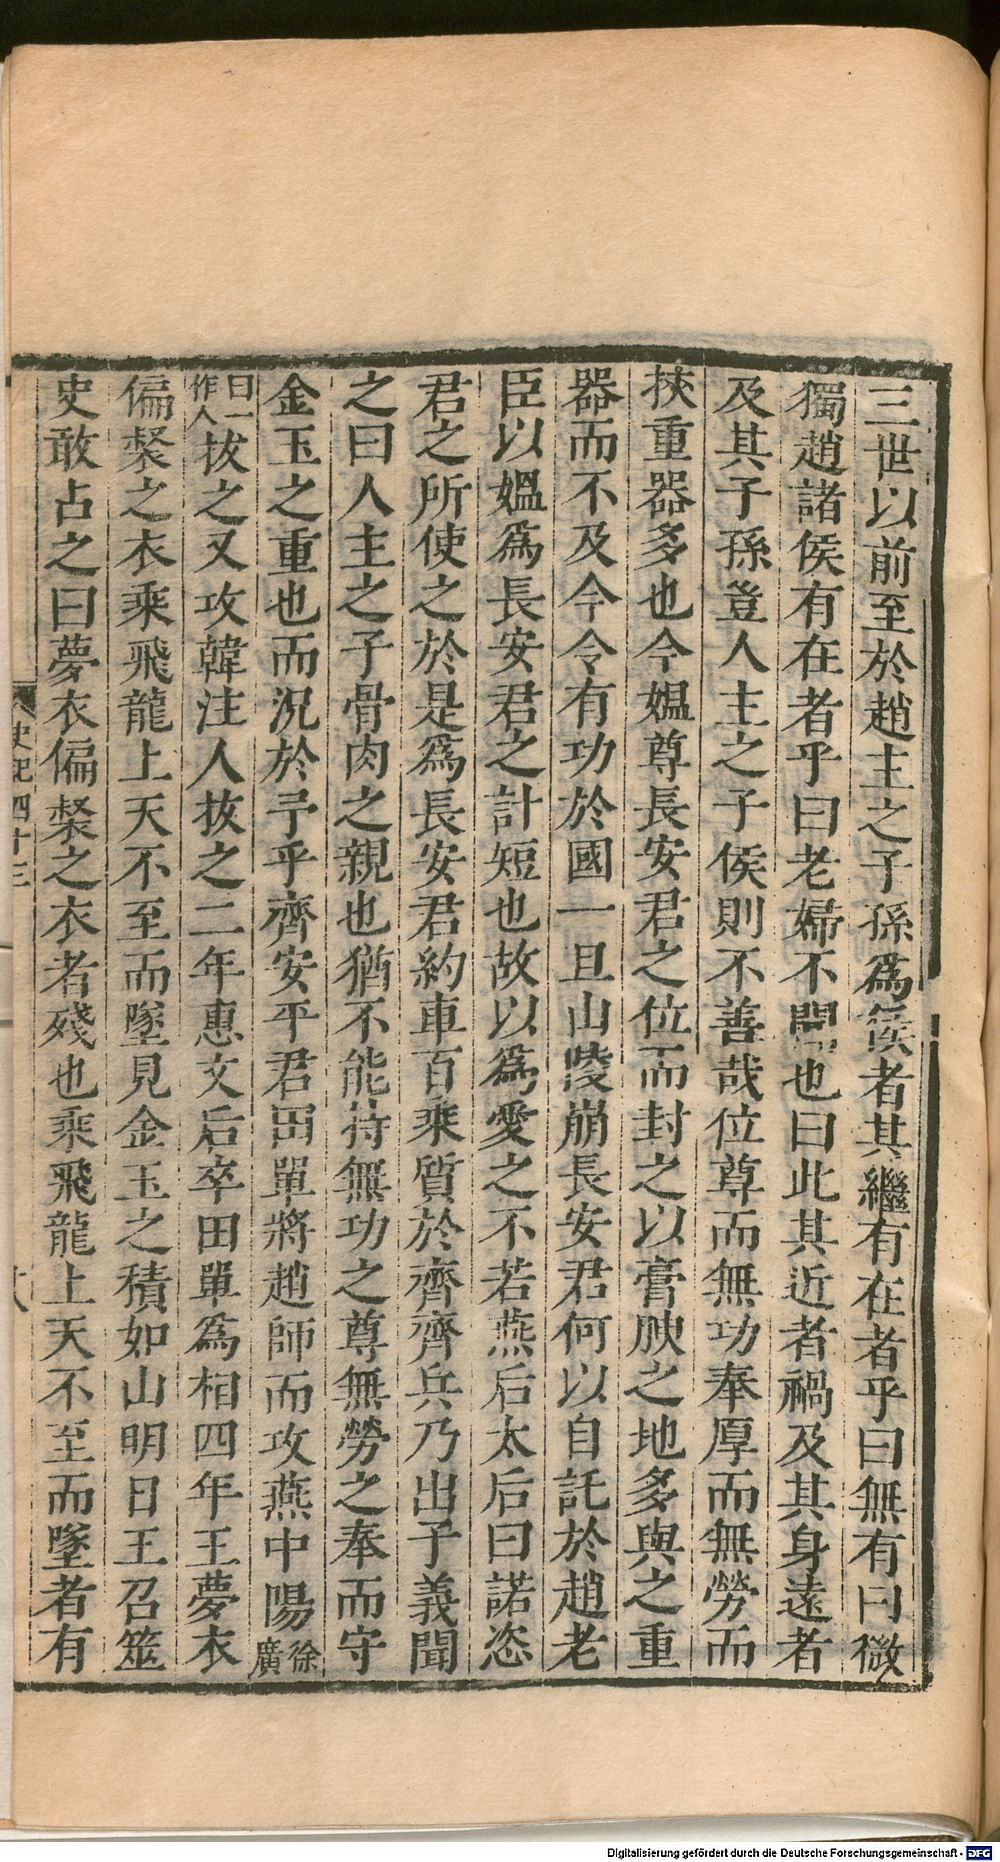 三世以前至於趙主之子孫爲侯者其繼有在者乎曰無有曰微
獨趙諸侯有在者乎曰老婦不聞也曰此其近者禍及其身遠者
及其子孫豈人主之子侯則不善哉位尊而無功奉厚而無勞而
挾重器多也今媼尊長安君之位而封之以膏腴之地多與之重
器而不及今令有功於國一旦山陵崩長安君何以自託於趙老
臣以媼爲長安君之計短也故以爲愛之不若燕后太后曰諾恣
君之所使之於是爲長安君約車百乘質於齊齊兵乃出子義聞
之曰人主之子骨肉之親也猶不能持無功之尊無勞之奉而守
金玉之重也而況於予乎齊安平君田單將趙師而攻燕中陽徐廣
曰一作人拔之又攻韓注人拔之二年惠文后卒田單爲相四年王夢衣
偏裻之衣乘飛龍上天不至而墜見金玉之積如山明日王召筮
史敢占之曰夢衣偏裻之衣者殘也乘飛龍上天不至而墜者有
史記四十三
十八
Digitalisierung gefördert durch die Deutsche Forschungsgemeinschaft - DFG